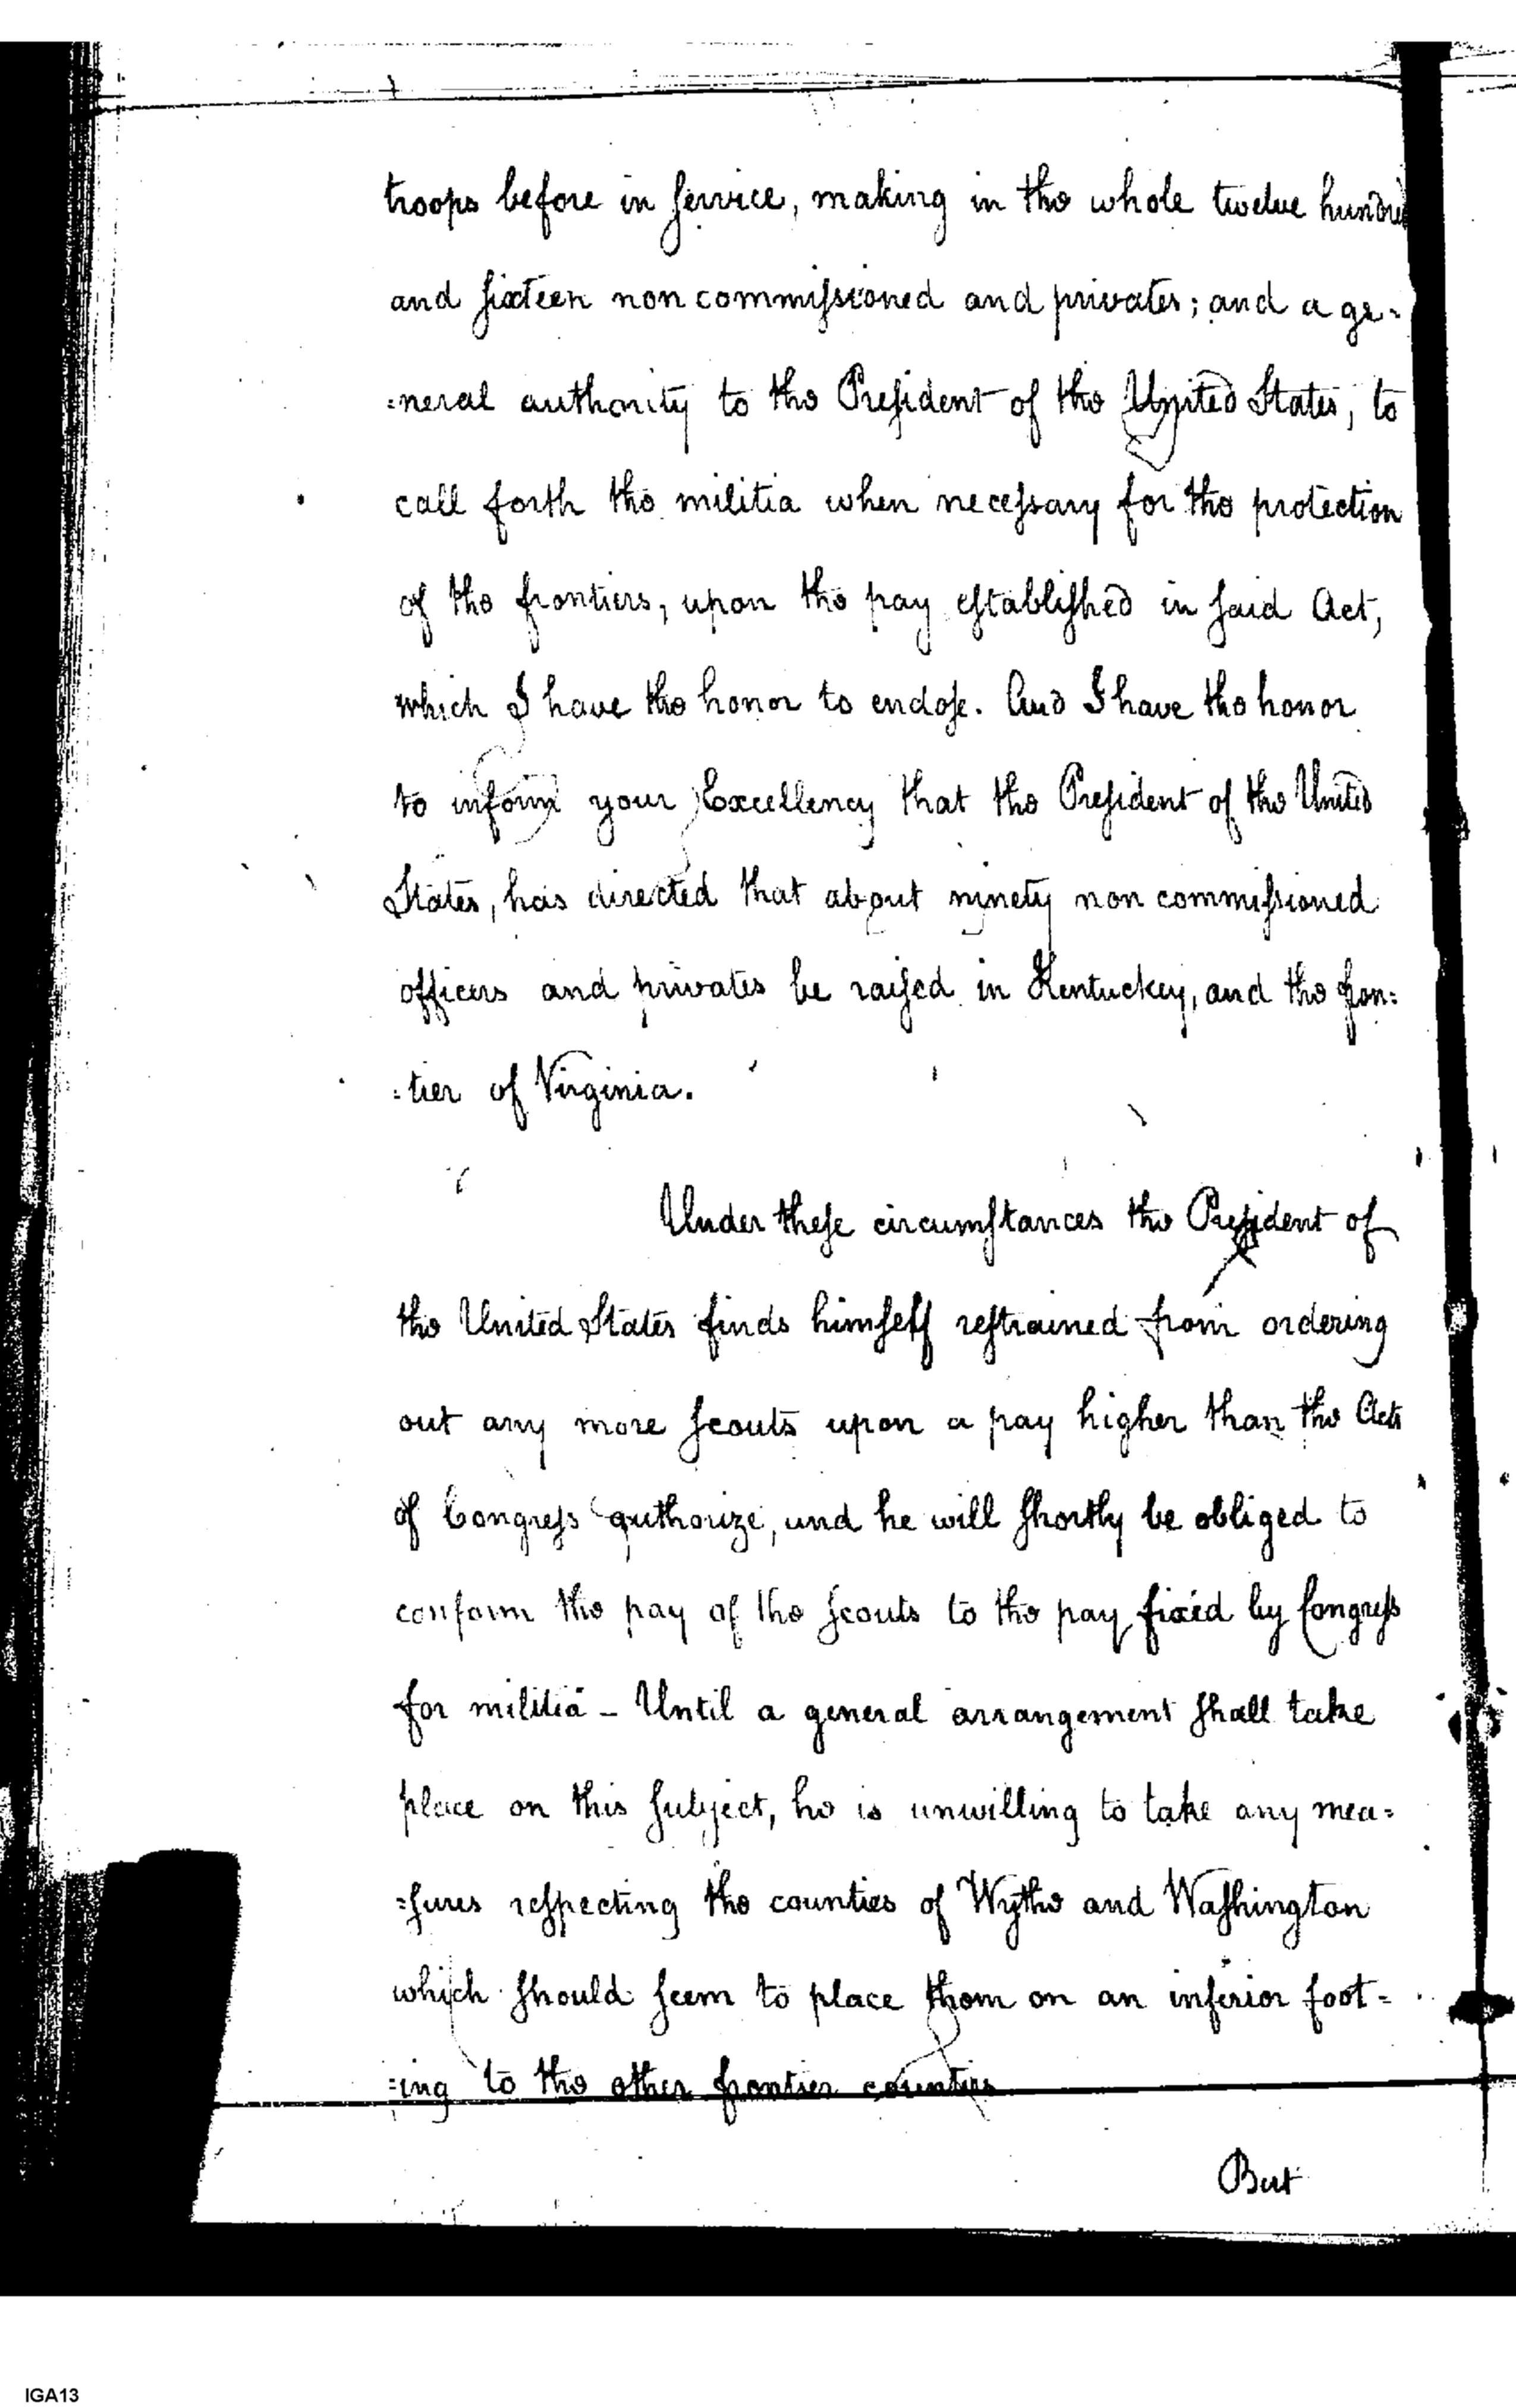 troops before in service, making in the whole twelve hundred
and sixteen non commissioned and privates; and a ge=
=neral authority to the President of the United States, to
call forth the militia when necessary for the protection
of the frontiers, upon the pay established in said Act,
which I have the honor to enclose. And I have the honor
to inform your Excellency that the President of the United
States, has directed that about ninety non commissioned
officers and privates be raised in Kentuckey, and the fron=
=tier of Virginia.
Under these circumstances the President of
the United States finds himself restrained from ordering
out any more scouts upon a pay higher than the Acts
of Congress authorize, and he will shortly be obliged to
conform the pay of the scouts to the pay fixed by Congress
for militia - Until a general arrangement shall take
place on this subject, he is unwilling to take any mea=
=sures respecting the counties of Wythe and Washington
which should seem to place them on an inferior foot=
=ing to the other frontier counties
But
IGA13